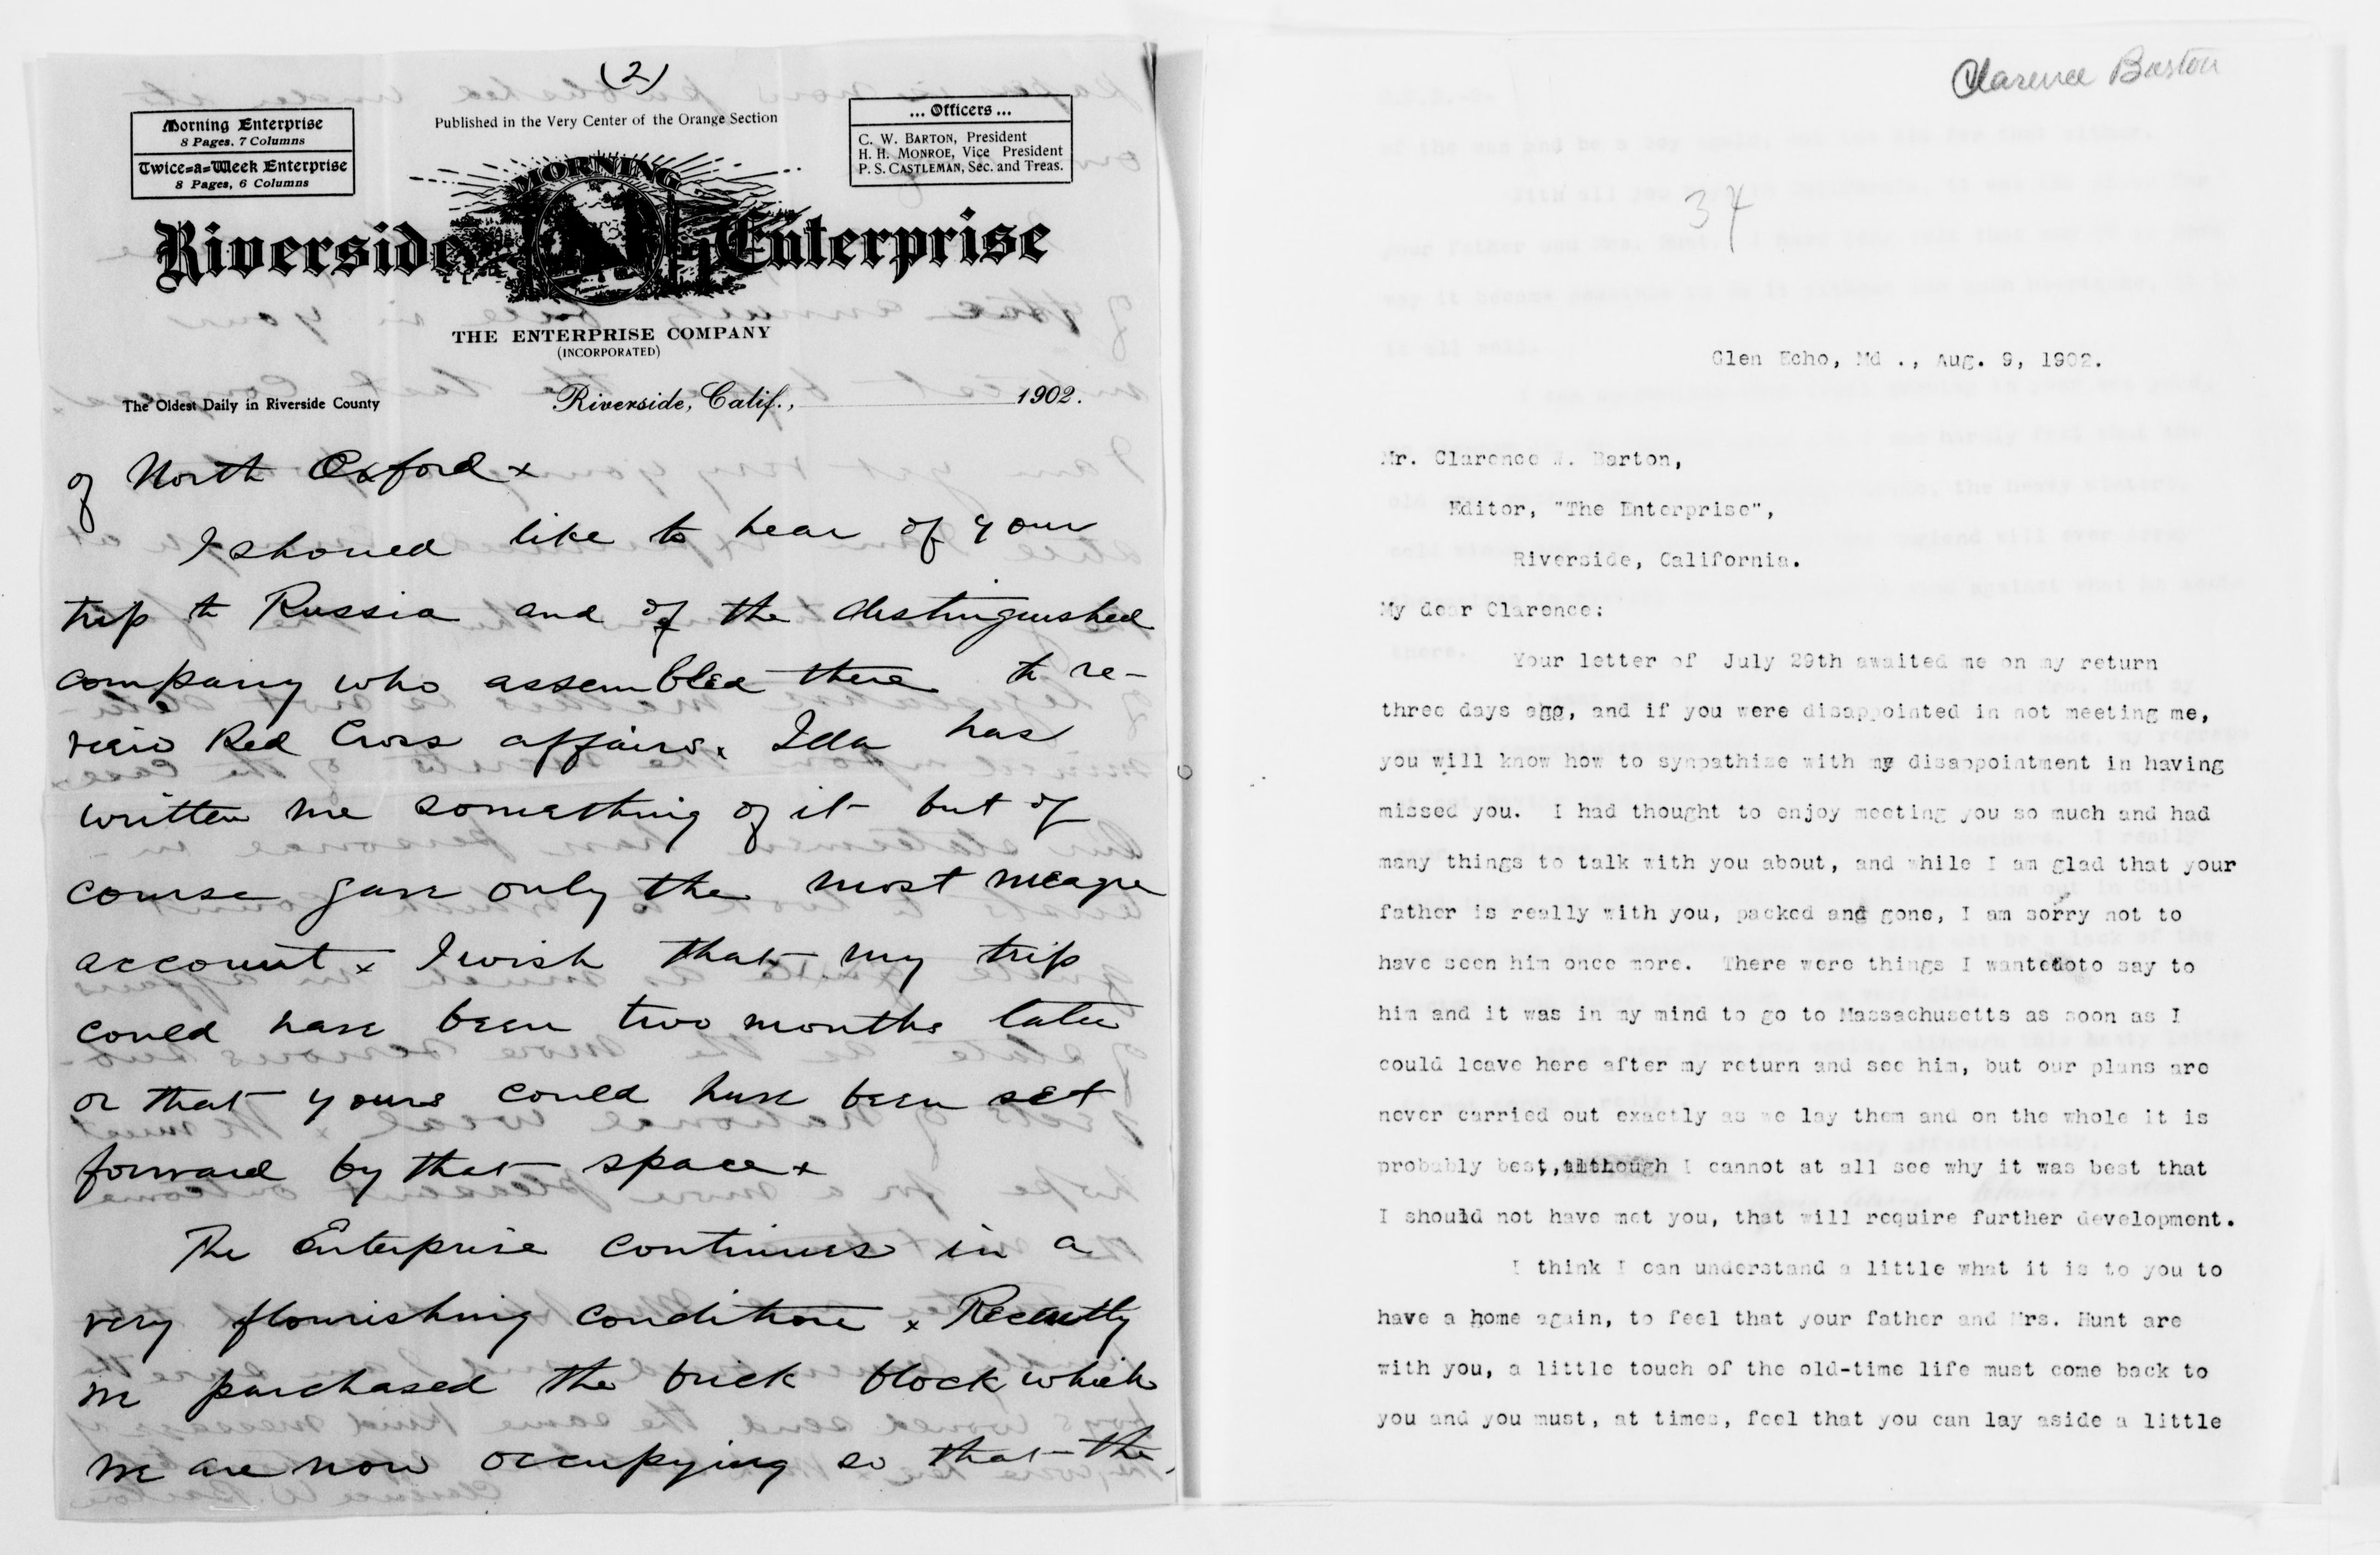 (2)
Morning Enterprise
8 Pages. 7 Columns
Twice=a=Week Enterprise
8 Pages, 6 Columns
Published in the Very Center of the Orange Section
... Officers ...
C. W. BARTON, President
H. H. MONROE, Vice President
P. S. CASTLEMAN, Sec. and Treas.
MORNING
Riverside Enterprise
THE ENTERPRISE COMPANY
(INCORPORATED)
The Oldest Daily in Riverside County
Riverside, Calif., 1902.
of North Oxford x
I should like to hear of your
trip to Russia and of the distinguished
company who assembled there to re-
Red Cross affairs x Ida has
written me something of it but of
course gave only the most meagre
account x I wish that my trip
could have been two months later
or that yours could have been set
forward by that space x
The Enterprise continues in a
very flourishing condition x Recently
we purchased the brick block which
we are now occupying so that the
Clarence Barton
34
Glen Echo, Md ., Aug. 9, 1902.
Mr. Clarence W. Barton,
Editor, "The Enterprise",
Riverside, California.
My dear Clarence:
Your letter of July 29th awaited me on my return
three days ago, and if you were disappointed in not meeting me,
you will know how to sympathise with my disappointment in having
missed you. I had thought to enjoy meeting you so much and had
many things to talk with you about, and while I am glad that your
father is really with you, packed and gone, I am sorry not to
have seen him once more. There were things I wanted to say to
him and it was in my mind to go to Massachusetts as soon as I
could leave here after my return and see him, but our plans are
never carried out exactly as we lay them and on the whole it is
probably best, although I cannot at all see why it was best that
I should not have met you, that will require further development.
I think I can understand a little what it is to you to
have a home again, to feel that your father and Mrs. Hunt are
with you, a little touch of the old-time life must come back to
you and you must, at times, feel that you can lay aside a little